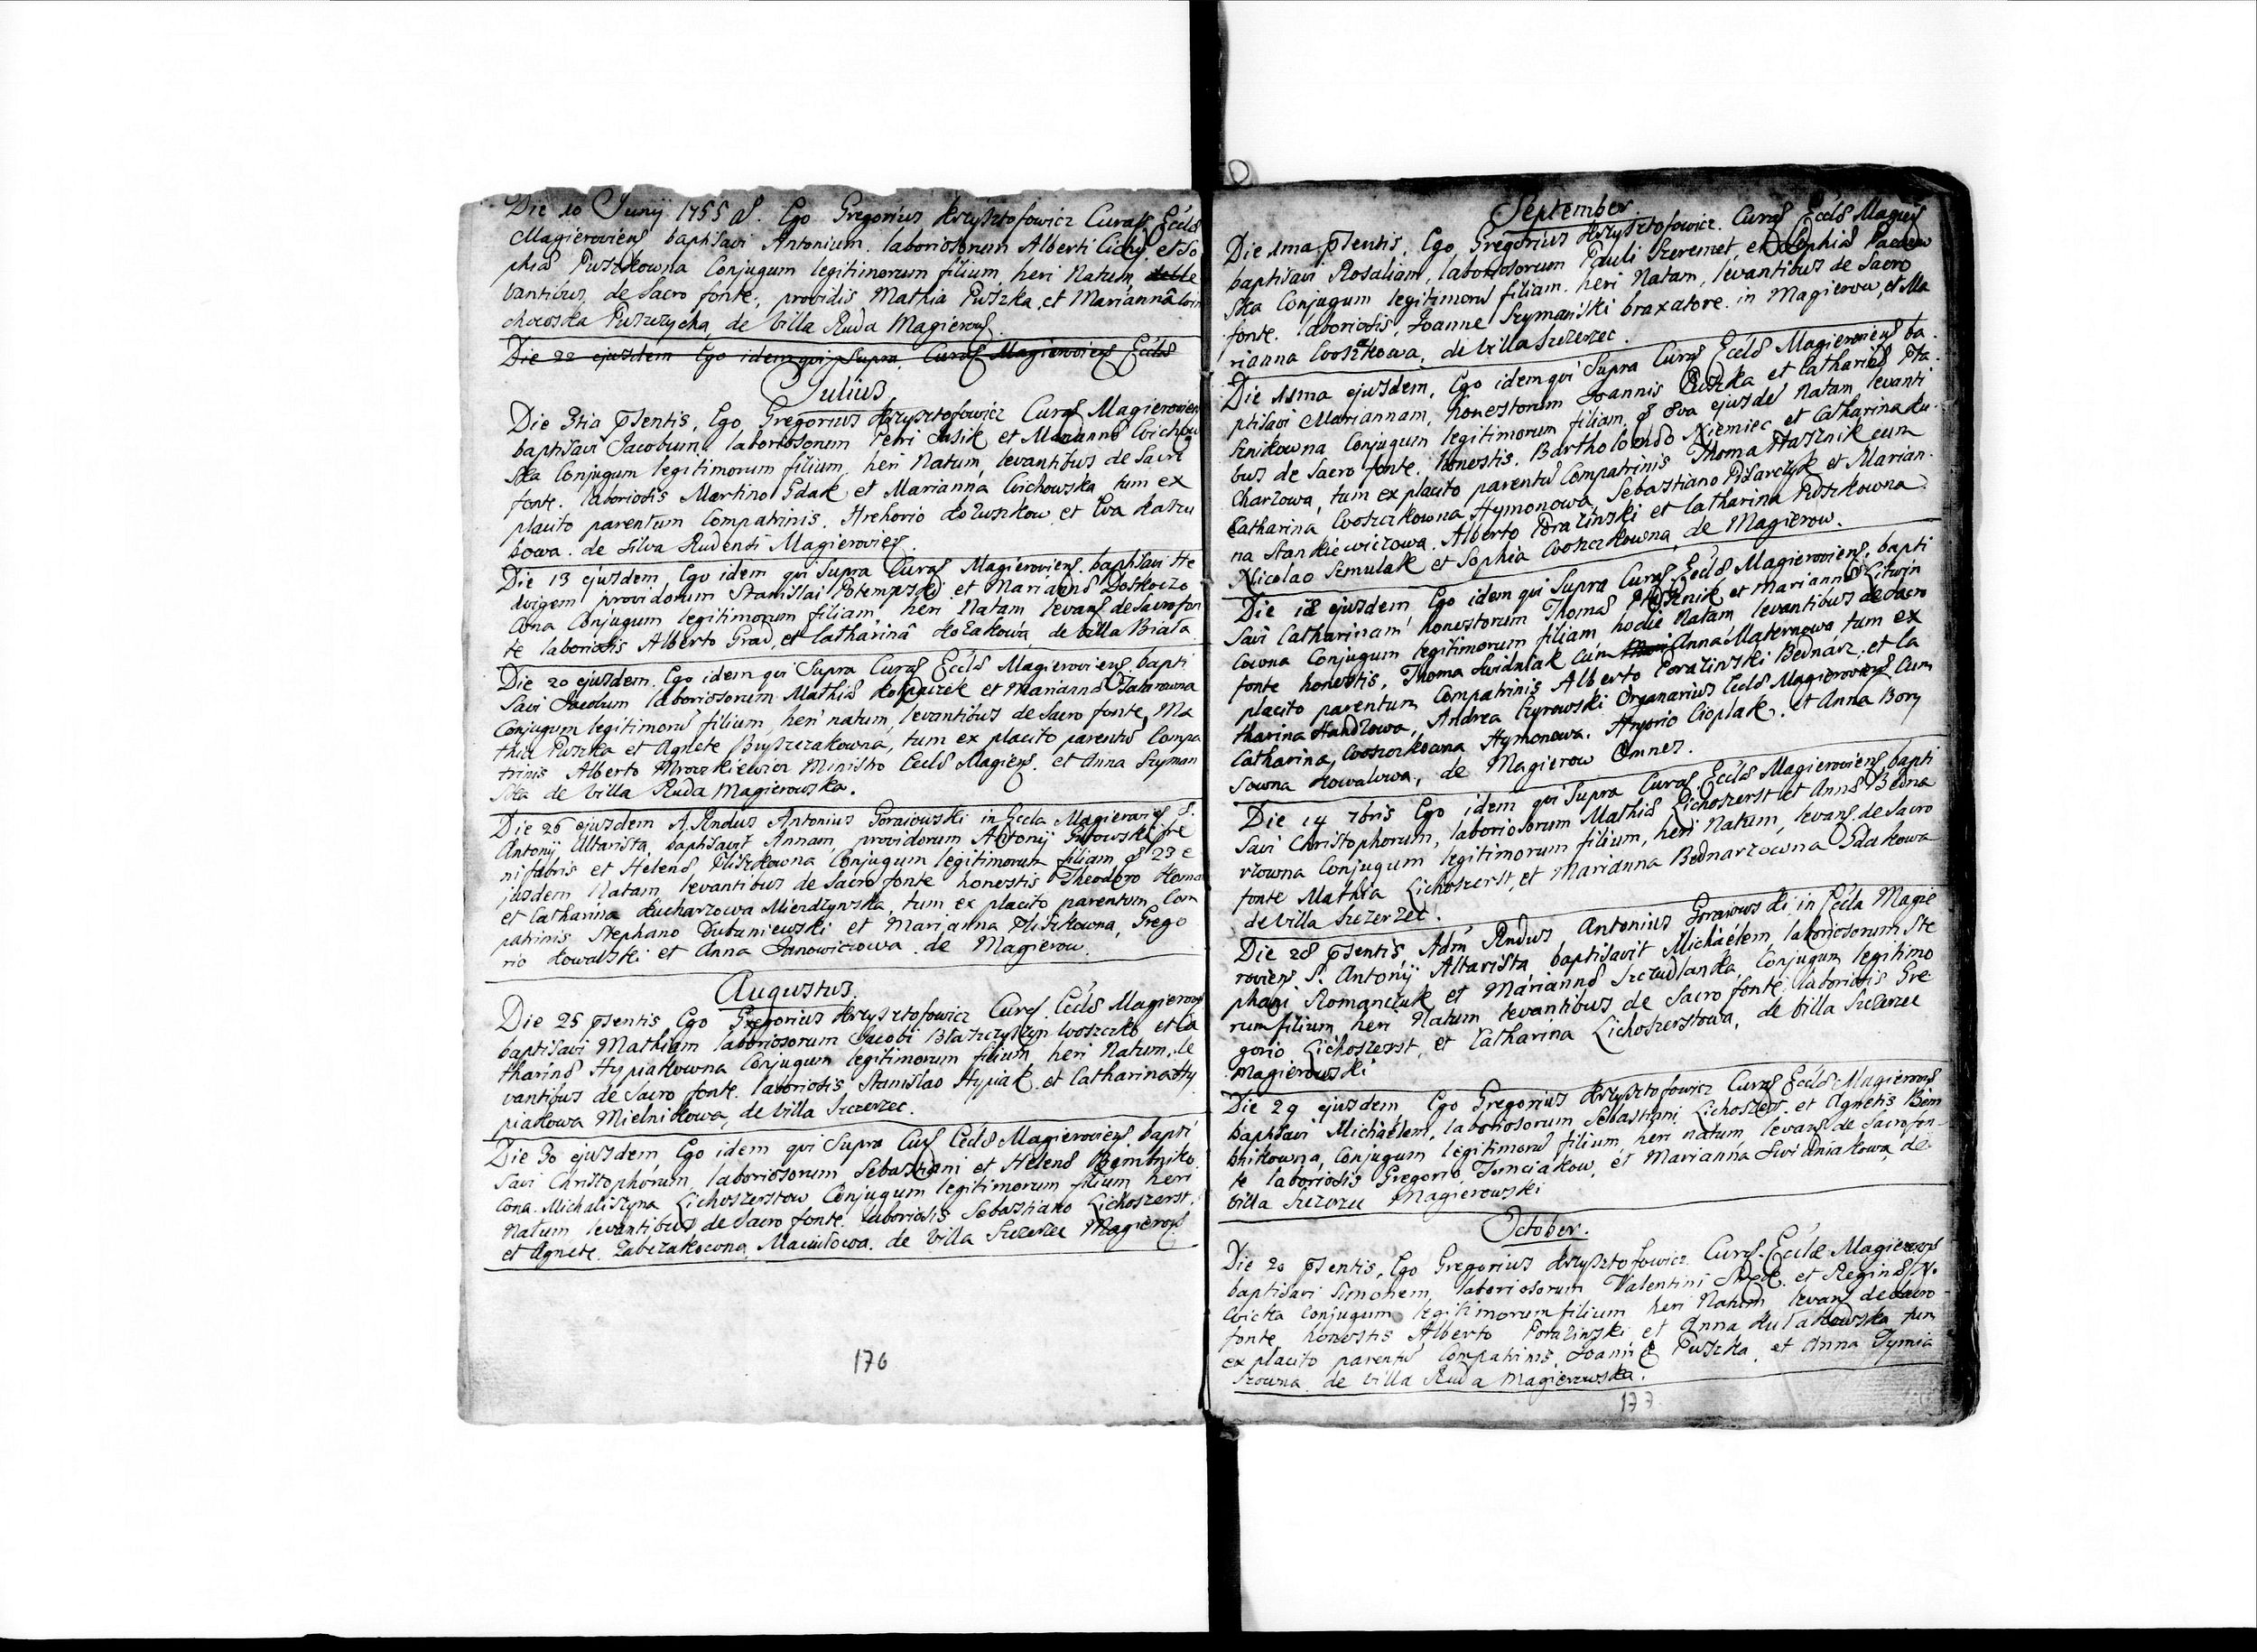 Die 10 Junij 1755 a. Ego Gregorius Krzysztofowicz Curat Eccls
Magierowiens baptisavi Antonium laboriosorum Alberti Cichy, et So
phiæ Puszkowna Conjugum legitimorum filium, heri Natum, le
vantibus, de Sacro fonte, providis Mathia Puszka, et Marianna
Puszczycha, de Villa Ruda Magierows.
Die 22 ejusdem Ego idem qui Supra Curats Magierowiens Eccls
Julius
Die 3tia psentis, Ego Gregorius Krzysztofowicz Curats Magierowien
baptisavi Jacobum, laboriosorum Petri Jasik et Marianna Woichow
ska Conjugum legitimorum filium, heri Natum, levantibus de Sacro
fonte. laboriosis Martino Gdak et Marianna Woichowska, tum ex
placito parentum Compatrinis. Hrehorio Kozuszkow, et Eva
bowa. de Silva Rudensi Magierowies.
Die 13 ejusdem, Ego idem qui Supra Curats Magierowiens. baptisavi He
dvigem, providorum Stanislai Potempski et Marianna Doskoczo
wna Conjugum legitimorum filiam, heri Natam levans de Sacro fon
te laboriosis Alberto Grad, et Catharinâ Kozakowa, de Villa Biała
Die 20 ejusdem. Ego idem qui Supra Curats Eccls Magierowiens bapti
savi Jacobum laboriosorum Mathiæ et Marianna Tatarowna
Conjugum legitimorũ filium, heri natum, levantibus de Sacro fonte, Ma
thia Puszka et Agnete Buszczakowna, tum ex placito parentũ Compa
trinis Alberto Mroczkiewicz Ministro Eccls Magiers. et Anna Szyman
ska de Villa Ruda Magierowska.
Die 26 ejusdem A. Rndus Antonius Goraiowski in Eccla Magierowies S.
Antonij Altarista, baptisavit Annam, providorum Antonij Gutowski fre
nifabris et Helenæ Pliszkowna Conjugum legitimorum filiam, d 23 e
jusdem Natam, levantibus de Sacro fonte honestis Theodoro Homa
et Catharina Kucharzowa Mierdzynska, tum ex placito parentum Com
patrinis Stephano Dubaniewski et Marianna Pliszkowna, Grego
rio Kowalski et Anna Janowiczowa de Magierow.
Augustus.
Die 25 psentis Ego Gregorius Krzysztofowicz Curs. Eccls Magierows
baptisavi Mathiam laboriosorum Jacobi Błaszczyszyn Woszczko et Ca
tharinæ Hypiakowna Conjugum legitimorum filium, heri Natum, le
vantibus de Sacro fonte. laboriosis Stanislao Hypiak et Catharina Hy
piakowa Mielnikowa, de Villa Szczerzec.
Die 30 ejusdem Ego idem qui Supra Curs Eccls Magierowiens, bapti
savi Christophorum, laboriosorum Sebastiani et Helenæ Bembniko
wna. Michaliszyna Lichoszerstow Conjugum legitimorum filium, heri
Natum levantibus de Sacro fonte. laboriosis Sebastiano Lichoszerst,
et Agnete. Zabczakowna Maciułowa. de Villa Szczerzec Magierows.
176
September
Die 1ma psentis, Ego, Gregorius Krzysztofowicz. Curats Eccls Magiers
baptisavi Rosaliam, laboriosorum Pauli Szeremet, et Sophiæ
ska Conjugum legitimorũ filiam heri Natam, levantibus de Sacro
fonte. laboriosis, Joanne Szymański braxatore. in Magierow, et Ma
rianna Woszczkowa, de Villa Szczerzec.
Die 11ma ejusdem, Ego idem qui Supra Curats Eccls Magierowiens ba
ptisavi Mariannam, honestorum Joannis Puszka et Catharinæ Pta
sznikowna Conjugum legitimorum filiam, d 8va ejusdẽ Natam, levanti
bus de Sacro fonte. honestis. Bartholomæo Niemiec et Catharina Ku
charzowa, tum ex placito parentũ Compatrinis Thoma Ptasznik cum
Catharina Woszczkowna Hymonowa, Sebastiano Pisarczyk et Marian
na Stankiewiczowa. Alberto Porazinski et Catharina Puszkowna
Nicolao Szmulak et Sophia Woszczkowna, de Magierow.
Die 12 ejusdem, Ego idem qui Supra Curats Eccls Magierowiens, bapti
savi Catharinam, honestorum Thomæ Ptasznik et Mariannæ Litwin
cowna Conjugum legitimorum filiam hodie Natam levantibus de Sacro
fonte honestis, Thoma Swidniak cum Anna Maternowa, tum ex
placito parentum Compatrinis Alberto Porazinski Bednarz, et Ca
tharina Handzowa, Andrea Czyrowski Organarius Eccls Magierowiens cum
Catharina, Woszczkowna Hymonowa. Hryorio Cioplak. et Anna Bory
sowna Kowalowa, de Magierow Omnes.
Die 14 7bris Ego idem qui Supra Curats Eccls Magierowiens bapti
savi Christophorum, laboriosorum Mathiæ Lichoszerst et Annæ Bedna
rzowna Conjugum legitimorum filium, heri Natum, levans de Sacro
fonte Mathia Lichoszerst, et Marianna Bednarzowna Gdakowa
de Villa Szczerzec.
Die 28 psentis, Adm Rndus Antonius Goraiowski in Eccla Magie
rowiens S. Antonij Altarista, baptisavit Michaëlem, laboriosorum Ste
phani Romanczuk et Mariannæ Szczudlanka, Conjugum legitimo
rum filium heri Natum levantibus de Sacro fonte, laboriosis Gre
gorio Lichoszerst, et Catharina Lichoszerstowa, de Villa Szczerzec
Magierowski
Die 29 ejusdem, Ego Gregorius Krzysztofowicz Curats Eccls Magierows
baptisavi Michaëlem, laboriosorum Sebastiani Lichoszerst. et Agnetis Bem
bnikowna, Conjugum legitimorũ filium, heri natum levans de Sacro fon
te laboriosis Gregorio, Jonciakow, et Marianna Swidniakowa, de
Villa Szczerzec Magierowski
October.
Die 20 psentis, Ego Gregorius Krzysztofowicz. Curats. Ecclæ Magierows
baptisavi Simonem, laboriosorum Valentini et Reginæ
Conjugum legitimorum filium heri Natum levans de Sacro
fonte honestis Alberto Porazinski et Anna Kułakowska tum
ex placito parentũ Compatrinis, Joanne Puszka, et Anna Tymia
szowna de Villa Ruda Magierowska.
177